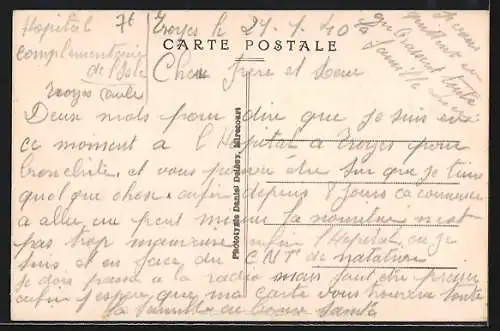 Hopital 76
complementaire
de l'Isle
Troyes Aube
Troyes le 24-1-40
CARTE POSTALE
Cher Frere et Soeur
Deux mots pour dire que je suis en
ce moment a l'Hopital a Troyes pour
bronchite. et vous pouvez être sur que je tiens
quel que chose. enfin depuis 8 jours ca commence
a aller un peut mieux la nourriture n'est
pas trop mauvaise enfin l'Hopital ou je
suis et en face du CNT de natation
je dois passe a la radio mais faut être precier
enfin j'espere que ma carte vous trouvera toute
la famille en bonne Santé
Je vous
embrassant toute
famille
Phototypie Daniel Delboy, Mirecourt